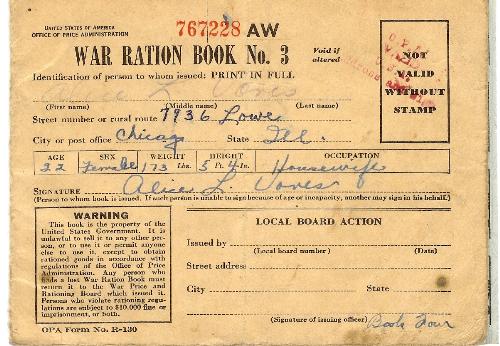 UNITED STATES OF AMERICA
OFFICE OF PRICE ADMINISTRATION
767228 AW
WAR RATION BOOK No. 3
Void if altered
NOT VALID WITHOUT STAMP
Identification of person to whom issued: PRINT IN FULL
Alice L.
(First name) (Middle name) (Last name)
Street number or rural route 7936 Lowe
City or post office Chicago State Ill.
AGE SEX WEIGHT HEIGHT OCCUPATION
22 Female 173 Lbs. 5 Ft. 4 In. Housewife
SIGNATURE Alice L.
(Person to whom book is issued. If such person is unable to sign because of age or incapacity, another may sign in his behalf.)
WARNING
This book is the property of the
United States Government. It is
unlawful to sell it to any other per-
son, or to use it or permit anyone
else to use it, except to obtain
rationed goods in accordance with
regulations of the Office of Price
Administration. Any person who
finds a lost War Ration Book must
return it to the War Price and
Rationing Board which issued it.
Persons who violate rationing regu-
lations are subject to $10,000 fine or
imprisonment, or both.
LOCAL BOARD ACTION
Issued by
(Local board number) (Date)
Street address
City State
(Signature of issuing officer)
Book Four
OPA Form No. R-130